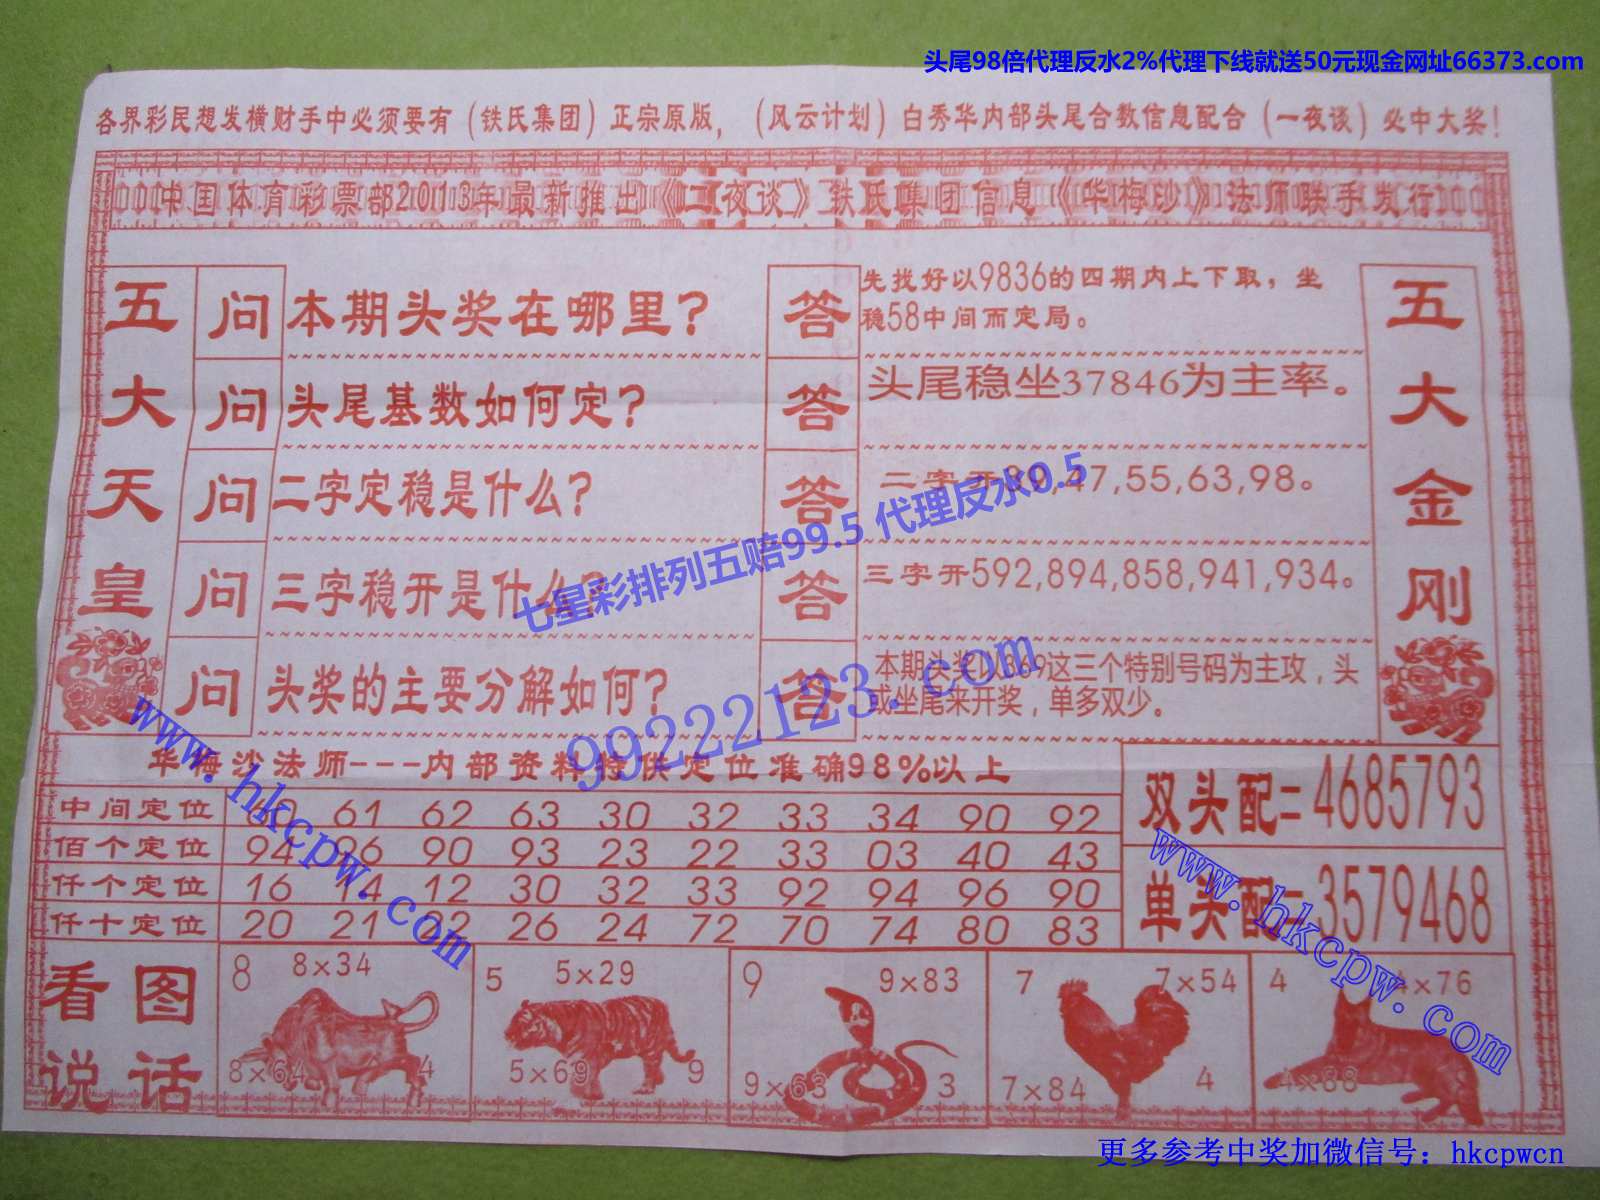 头尾98倍代理反水2%代理下线就送50元现金网址66373.com
各界彩民想发横财手中必须要有（铁氏集团）正宗原版，（风云计划）白秀华内部头尾合数信息配合（一夜谈）必中大奖！
中国体育彩票部2013年最新推出《二夜谈》铁氏集团信息《华梅沙》法师联手发行
五大天皇
问 本期头奖在哪里？
答 先找好以9836的四期内上下取，坐
稳58中间而定局。
问 头尾基数如何定？
答 头尾稳坐37846为主率。
问 二字定稳是什么？
答 二字开89,47,55,63,98。
问 三字稳开是什么？
答 三字开592,894,858,941,934。
问 头奖的主要分解如何？
答 本期头奖以369这三个特别号码为主攻，头
或坐尾来开奖，单多双少。
五大金刚
七星彩排列五赔99.5 代理反水0.5
99222123.com
www.hkcpw.com
华梅沙法师---内部资料特供定位准确98%以上
中间定位 61 62 63 30 32 33 34 90 92
佰个定位 94 96 90 93 23 22 33 03 40 43
仟个定位 16 14 12 30 32 33 92 94 96 90
仟十定位 20 21 22 26 24 72 70 74 80 83
双头配=4685793
单头配=3579468
www.hkcpw.com
看图
说话
8 8×34
8×64 4
5 5×29
5×69 9
9 9×83
9×63 3
7 7×54
7×84 4
4 4×76
4×88
更多参考中奖加微信号：hkcpwcn